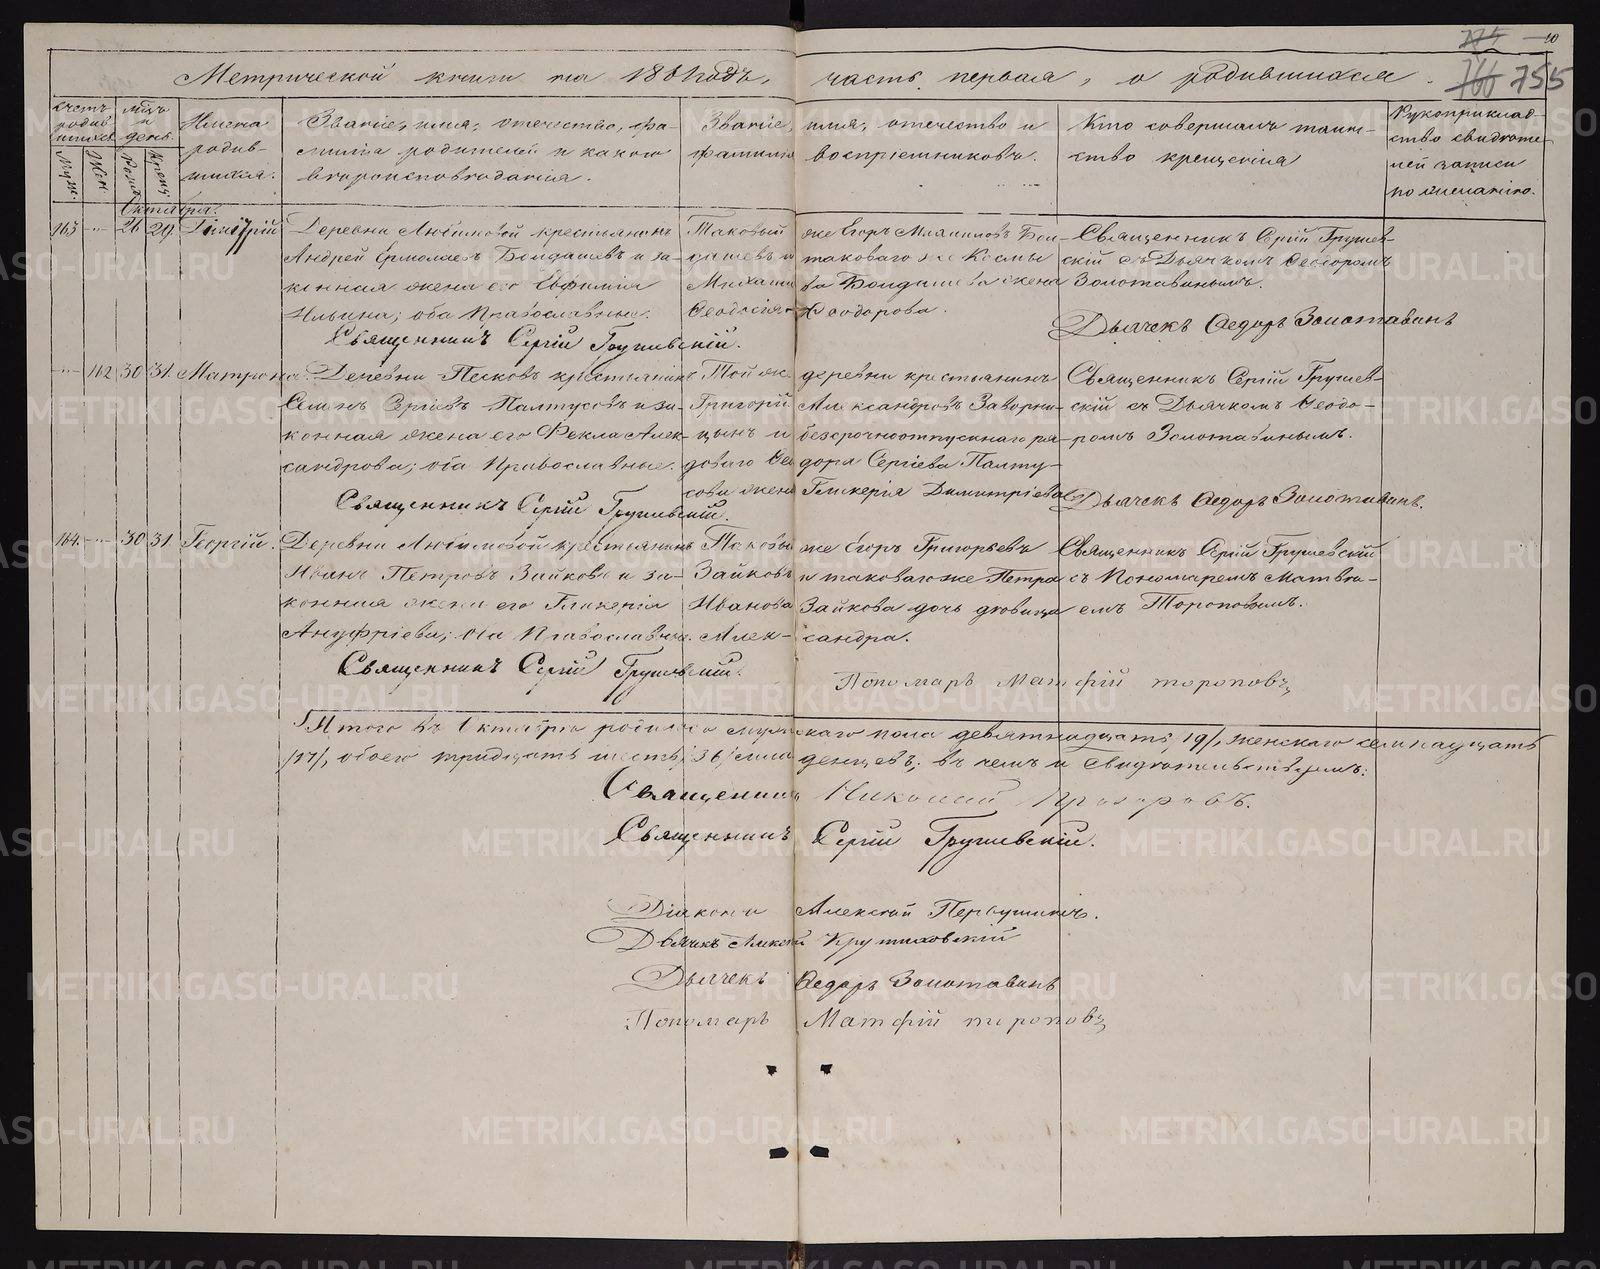 775 10
766 755
Метрической книги на 1881 годъ, часть первая, о родившихся.
Счетъ родив шихся. Мѣс. и день
Муж. Жен. Рожд. Крещ.
Имена родив- шихся.
Званіе, имя, отечество, фа-
милія родителей и какого
вѣроисповѣданія.
Званіе, имя, отечество и
фамилія воспріемниковъ.
Кто совершалъ таин-
ство крещенія
Рукоприклад-
ство свидѣте-
лей записи
по желанію.
Октября.
163 -"- 26 29
Деревни Любимовой крестьянинъ
Андрей Ермолаевъ Болдашевъ и за-
конная жена его Евфимія
Ильина; оба Православные.
Таковый же Егоръ Михаиловъ Бол-
дашевъ и таковаго же Космы
Михаилова Болдашева жена
Ѳеодосія Ѳеодорова.
Священникъ Сергій Грушев-
скій съ Дьячкомъ Ѳеодоромъ
Золотавинымъ.
Дьячекъ Ѳедоръ Золотавинъ
Священникъ Сергій Грушевскій.
-"- 162 30 31. Матрона.
Деревни Песковъ крестьянинъ
Семенъ Сергіевъ Палтусовъ и за-
конная жена его Ѳекла Алек-
сандрова; оба Православные.
Той же деревни крестьянинъ
Григорій Александровъ Заворни-
цынъ и безсрочноотпускнаго ря-
доваго Ѳедора Сергіева Палту-
сова жена Гликерія Димитріева
Священникъ Сергій Грушев-
скій съ Дьячкомъ Ѳеодо-
ромъ Золотавинымъ.
Дьячекъ Ѳедоръ Золотавинъ.
Священникъ Сергій Грушевскій.
164. -"- 30 31 Георгій.
Деревни Любимовой крестьянинъ
Иванъ Петровъ Зайковъ и за-
конная жена его Гликерія
Ануфріева; оба Православные.
Таковый же Егоръ Григорьевъ
Зайковъ и таковаго же Петра
Иванова Зайкова дочь дѣвица
Алек- сандра.
Священникъ Сергій Грушевскій
съ Пономаремъ Матвѣ-
емъ Тороповымъ.
Священникъ Сергій Грушевскій.
Пономарь Матфій тороповъ
Итого въ Октябрѣ родилось мужскаго пола девятнадцать /19/, женскаго семнадцать
/17/, обоего тридцать шесть /36/ младенцевъ; въ чемъ и свидѣтельствуемъ:
Священникъ Николай Прозоровъ.
Священникъ Сергій Грушевскій.
Діаконъ Алексей Первушинъ.
Дьячекъ Алексей Крутиховскій
Дьячекъ Ѳедоръ Золотавинъ
Пономарь Матфій тороповъ
METRIKI.GASO-URAL.RU